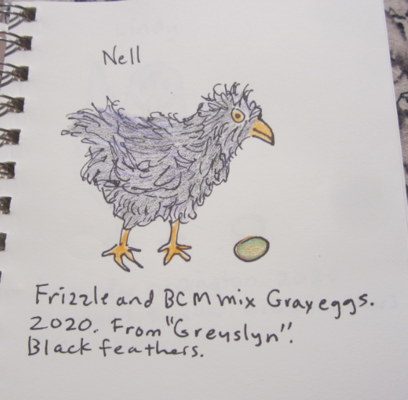 Nell
Frizzle and BCM mix Gray eggs.
2020. From "Greyslyn".
Black feathers.